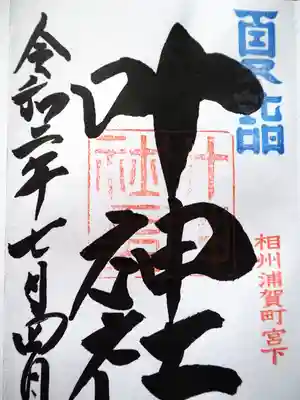 夏詣
相州浦賀町宮下
叶神社
令和二年七月四日